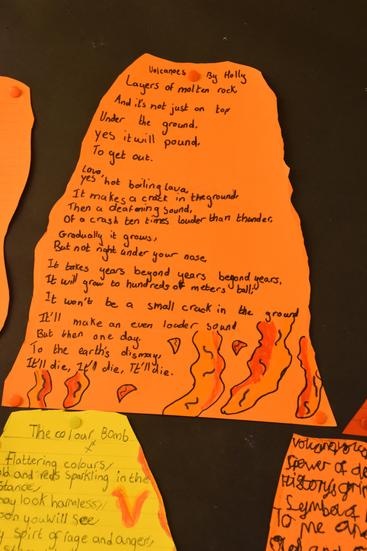 Volcanoes By Holly
Layers of molten rock
And it's not just on top
Under the ground,
yes it will pound,
To get out.
Lava,
yes hot boiling lava,
It makes a crack in the ground,
Then a deafening sound,
Of a crash ten times louder than thunder,
Gradually it grows,
But not right under your nose,
It takes years beyond years beyond years,
It will grow to hundreds off meters tall;
It won't be a small crack in the ground
It'll make an even louder sound
But then one day,
To the earth's dismay,
It'll die, It'll die, It'll die.
The colour Bomb
Flattering colours,
and reds sparkling in the
stance,
may look harmless,
soon you will see
spirit of rage and anger,
Volcano,
power of de
History's
Symbols
To me an